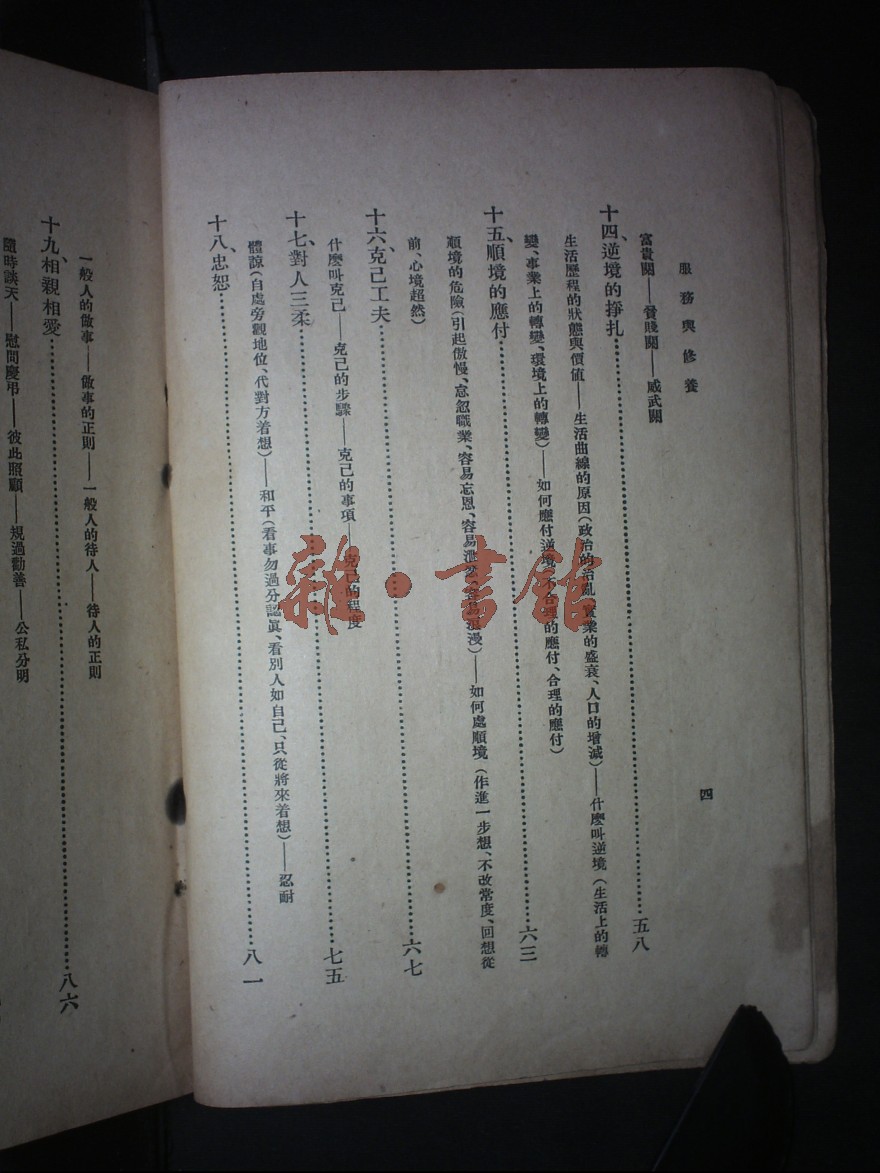 服務與修養
四
富貴關——貧賤關——威武關
十四、逆境的掙扎…………五八
生活歷程的狀態與價值——生活曲線的原因(政治的治亂、實業的盛衰、人口的增減)——什麼叫逆境(生活上的轉
變、事業上的轉變、環境上的轉變)——如何應付逆境(不合理的應付、合理的應付)
十五、順境的應付…………六三
順境的危險(引起傲慢、怠忽職業、容易忘恩、容易洩憝、容易浪漫)——如何處順境(作進一步想、不改常度、回想從
前、心境超然)
十六、克己工夫…………六七
什麼叫克己——克己的步驟——克己的事項——克己的程度
十七、對人三柔…………七五
體諒(自處旁觀地位、代對方着想)——和平(看事勿過分認眞、看別人如自己、只從將來着想)——忍耐
十八、忠恕…………八一
一般人的做事——做事的正則——一般人的待人——待人的正則
十九、相親相愛…………八六
隨時談天——慰問慶弔——彼此照顧——規過勸善——公私分明
雜·書館